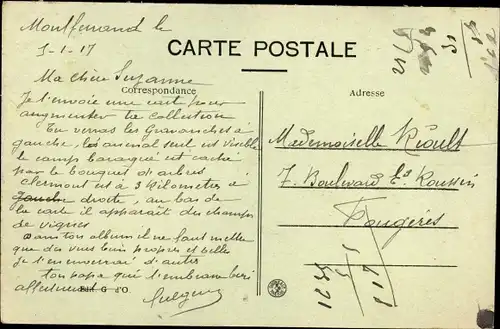 Montferrand le
5-1-17
CARTE POSTALE
Ma chère Suzanne
Correspondance
Adresse
Je t'envoie une carte pour
augmenter ta collection
Tu verras les Gravanches à
gauche, les arsenal seul est visible
le camp baraqué est caché
par le bouquet d'arbres
Clermont est à 3 kilomètres à
gauche droite, au bas de
la carte il apparaît des champs
de vignes
Dans ton album il ne faut mettre
que des vues bien propres et belle
je t'en enverrai d'autres
ton papa qui t'embrasse bien
affectueusement
G. d'O.
Mademoiselle Rioult
7. Boulevard
Fougères